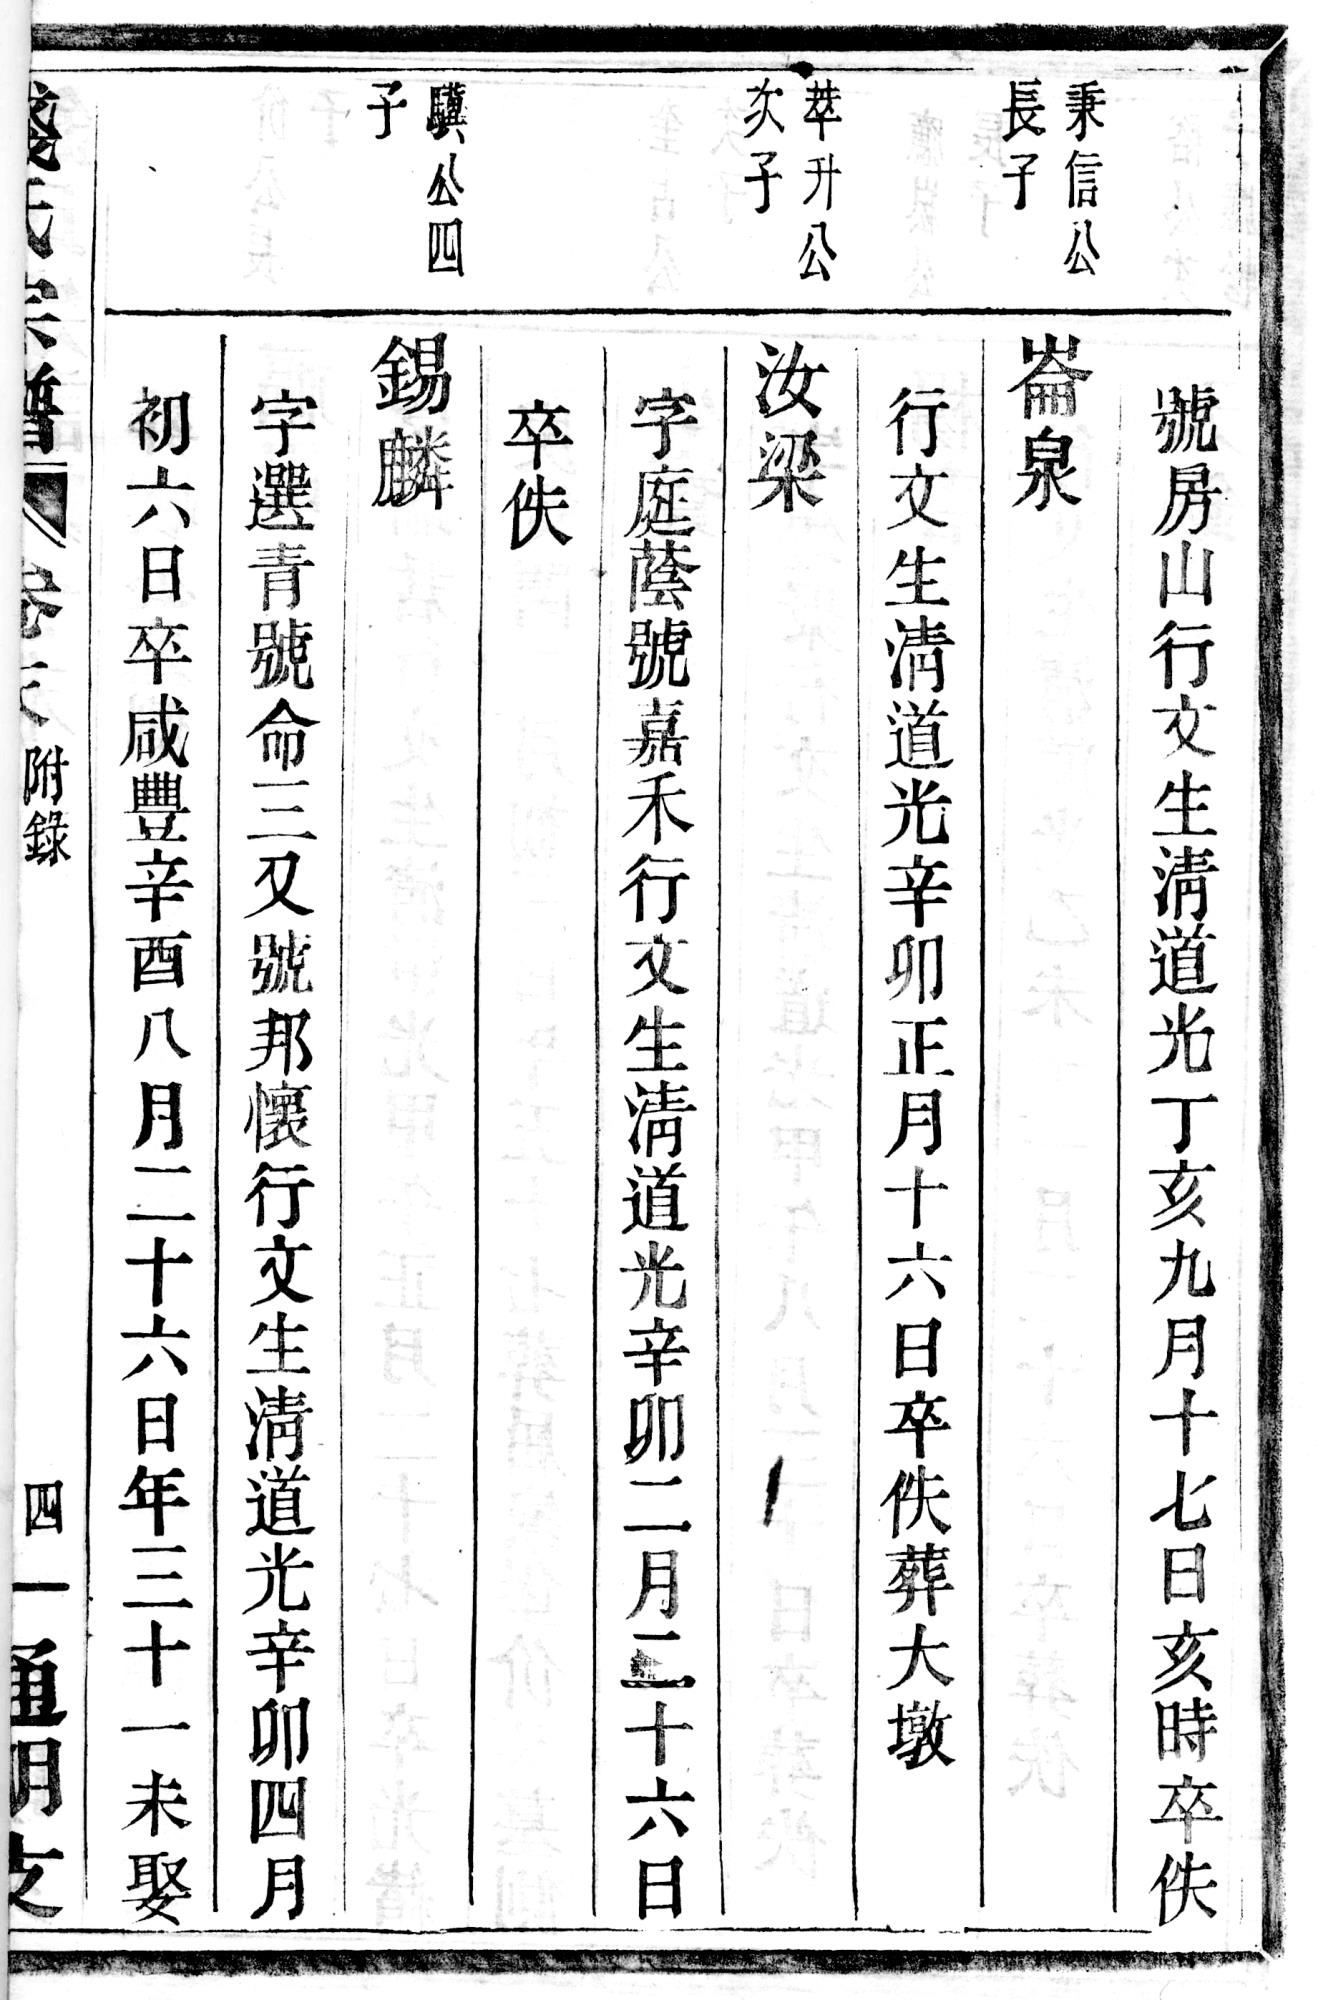 號房山行文生清道光丁亥九月十七日亥時卒佚
秉信公
長子
崙泉
行文生清道光辛卯正月十六日卒佚葬大墩
萃升公
次子
汝梁
字庭蔭號嘉禾行文生清道光辛卯二月二十六日
卒佚
驥公四
子
錫麟
字選青號命三又號邦懷行文生清道光辛卯四月
初六日卒咸豐辛酉八月二十六日年三十一未娶
氏宗譜
附錄
四一
通明文